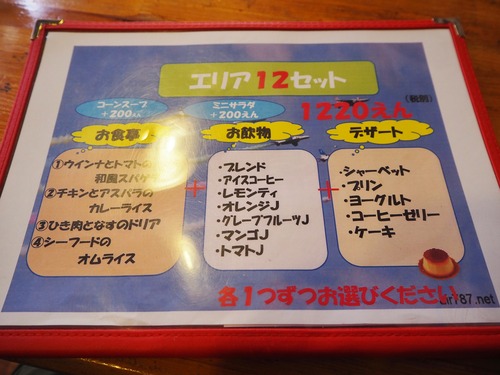 エリア12セット
コーンスープ
+200えん
ミニサラダ
+200えん
1220えん
(税前)
お食事
①ウインナとトマトの
和風スパゲ
②チキンとアスパラの
カレーライス
③ひき肉となすのドリア
④シーフードの
オムライス
+
お飲物
・ブレンド
・アイスコーヒー
・レモンティ
・オレンジJ
・グレープフルーツJ
・マンゴJ
・トマトJ
+
デザート
・シャーベット
・プリン
・ヨーグルト
・コーヒーゼリー
・ケーキ
各1つずつお選びください
air787.net